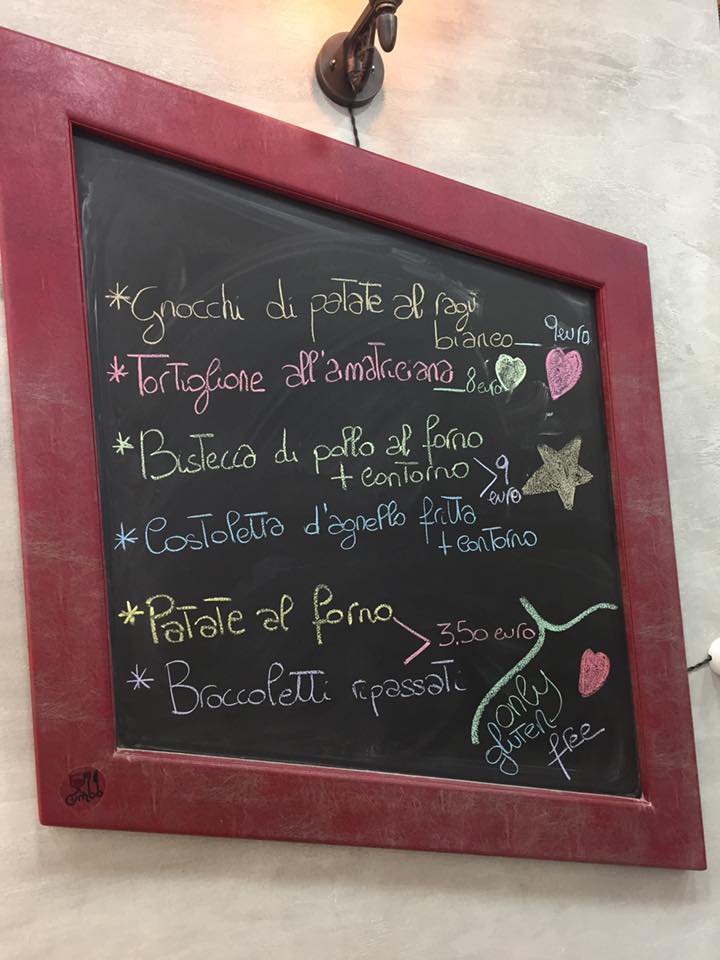 *Gnocchi di patate al ragù
bianco__ 9 euro
*Tortiglione all'amatriciana__8 euro
*Bistecca di pollo al forno
+ contorno >9 euro
*Costoletta d'agnello fritta
+ contorno
*Patate al forno
> 3,50 euro
*Broccoletti ripassati
only
gluten
free